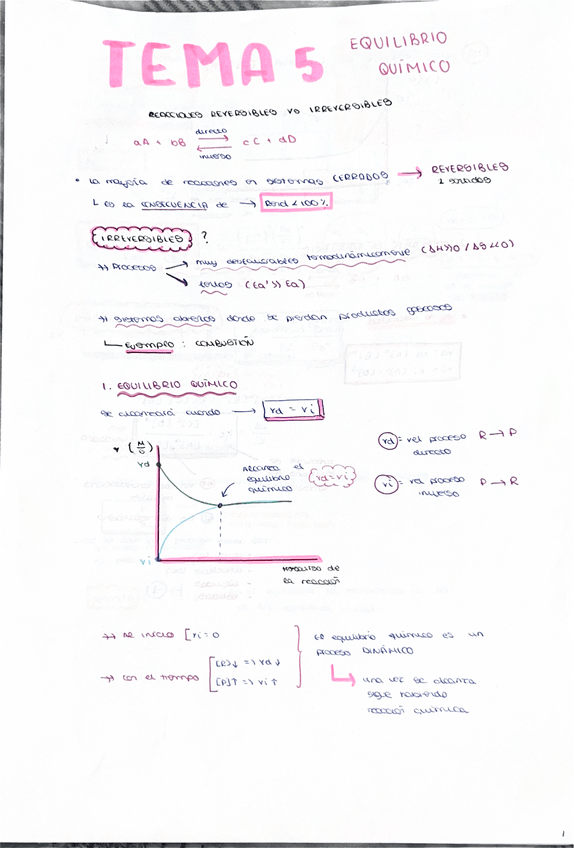 TEMA 5 EQUILIBRIO
QUÍMICO
REACCIONES REVERSIBLES VS IRREVERSIBLES
directo
aA + bB ⇄ cC + dD
inverso
• La mayoría de reacciones en sistemas CERRADOS → REVERSIBLES
↳ es la CONSECUENCIA de → Rend < 100%
IRREVERSIBLES ?
→ Procesos → muy desfavorables termodinámicamente (ΔH>>0 / ΔS<<0)
→ lentos (Ea' >> Ea)
→ sistemas abiertos donde se pierdan productos gaseosos
↳ Ejemplo : COMBUSTIÓN
1. EQUILIBRIO QUÍMICO
Se alcanzará cuando → vd = vi
v (M/s)
vd
alcanza el
equilibrio
químico
vd=vi
vi
transcurso de
la reacción
vd = vel proceso R → P
directo
vi = vel proceso P → R
inverso
→ Al inicio [ vi = 0
→ con el tiempo [R]↓ => vd ↓
[P]↑ => vi ↑
El equilibrio químico es un
proceso DINÁMICO
↳ una vez se alcanza
sigue habiendo
reacción química
1